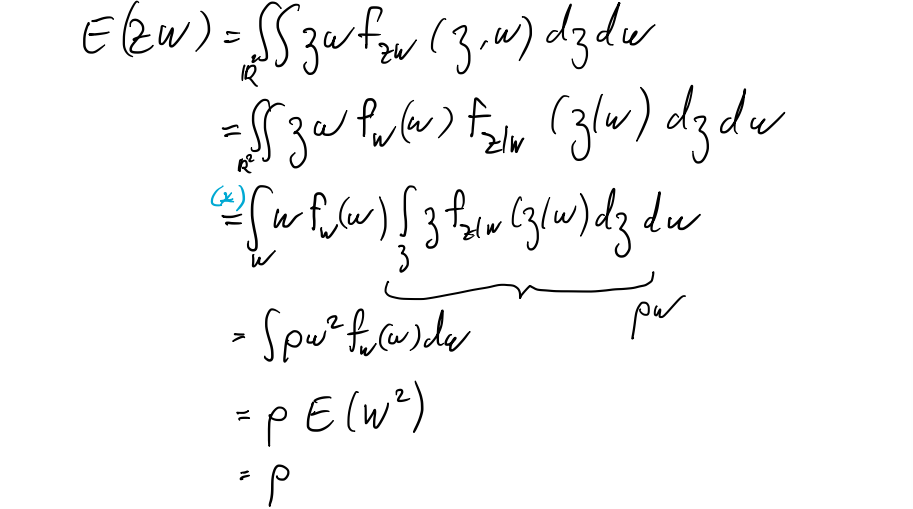 E(ZW) = ∬_{ℝ²} z w f_{ZW}(z, w) dz dw
= ∬_{ℝ²} z w f_W(w) f_{Z|W}(z|w) dz dw
(*) = ∫_W w f_W(w) ∫_z z f_{Z|W}(z|w) dz dw
ρw
= ∫ ρw² f_W(w) dw
= ρ E(W²)
= ρ